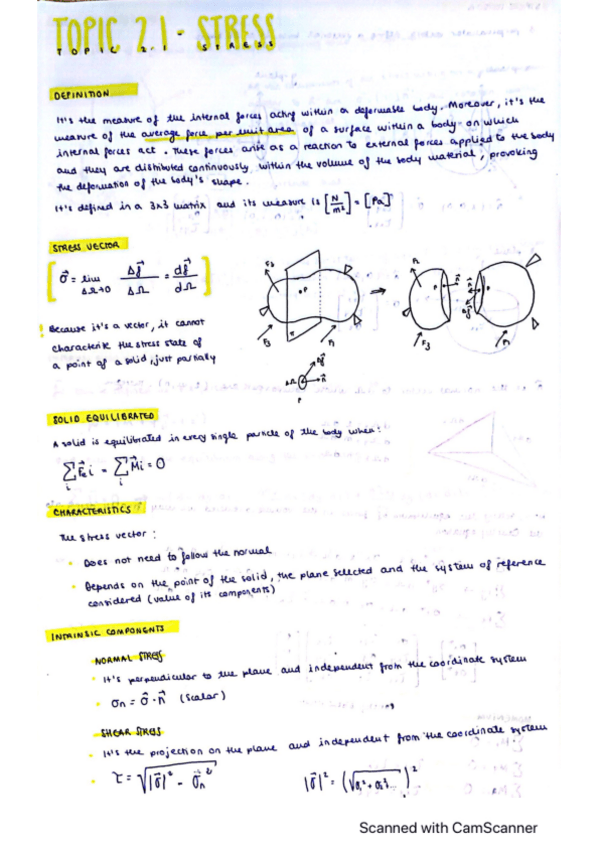 TOPIC 2.1 - STRESS
TOPIC 2.1 STRESS
DEFINITION
It's the measure of the internal forces acting within a deformable body. Moreover, it's the
measure of the average force per unit area of a surface within a body on which
internal forces act. These forces arise as a reaction to external forces applied to the body
and they are distributed continuously within the volume of the body material, provoking
the deformation of the body's shape.
It's defined in a 3x3 matrix and its measure is [N/m²] = [Pa]
STRESS VECTOR
σ⃗ = lim ΔΩ→0 Δf⃗/ΔΩ = df⃗/dΩ
F2 P F3 F1 π
F2 P n⃗ F3
P Δf⃗ F1
! Because it's a vector, it cannot
characterize the stress state of
a point of a solid, just partially
ΔΩ Δf⃗ n⃗ P
SOLID EQUILIBRATED
A solid is equilibrated in every single particle of the body when:
∑i F⃗i = ∑i M⃗i = 0
CHARACTERISTICS
The stress vector:
• Does not need to follow the normal
• Depends on the point of the solid, the plane selected and the system of reference
considered (value of its components)
INTRINSIC COMPONENTS
NORMAL STRESS
• It's perpendicular to the plane and independent from the coordinate system
• σn = σ⃗ · n⃗ (scalar)
SHEAR STRESS
• It's the projection on the plane and independent from the coordinate system
• τ = √(|σ⃗|² - σn²) |σ⃗|² =
Scanned with CamScanner